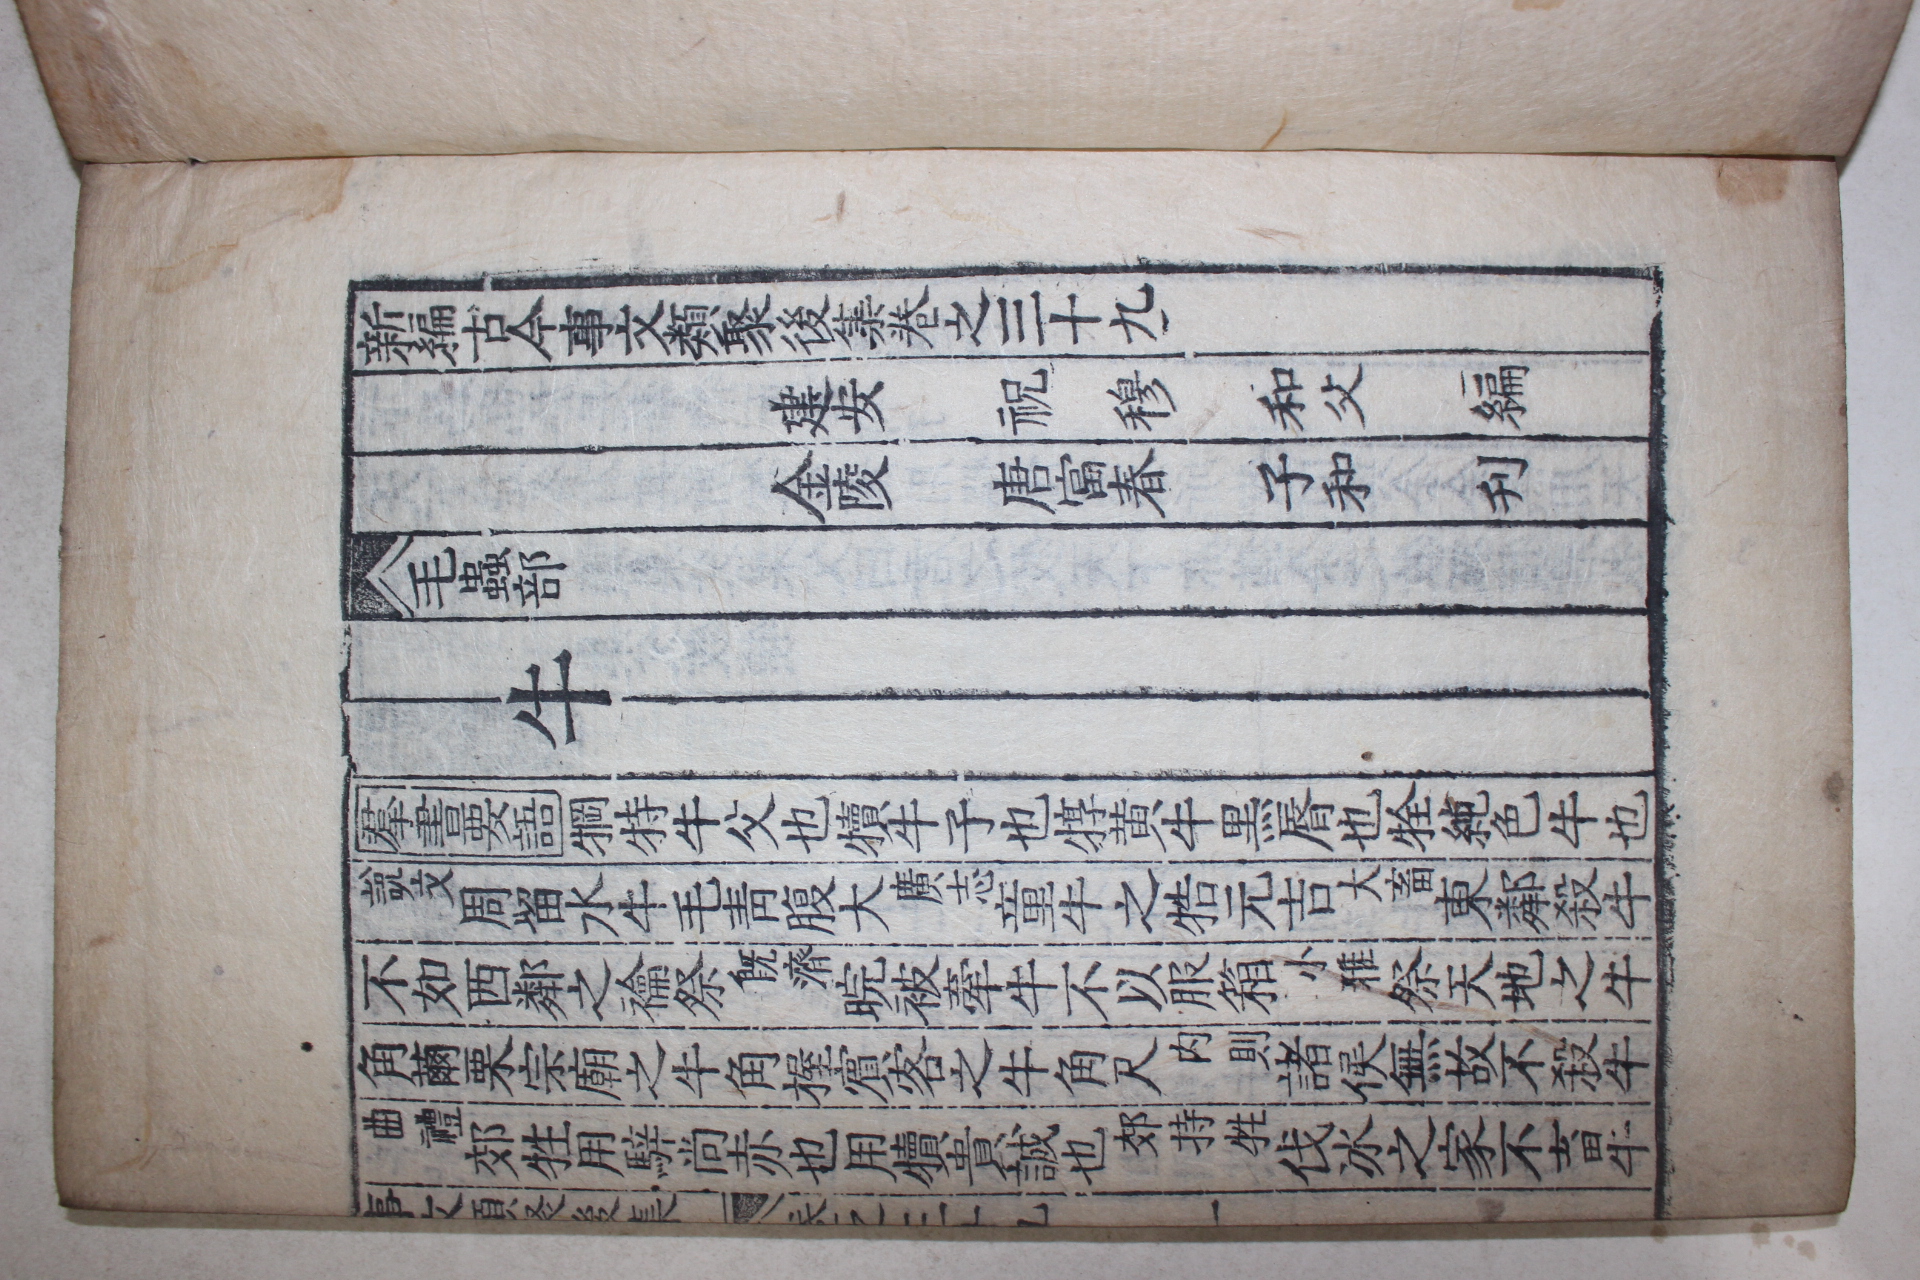 新編古今事文類聚後集卷之三十九
建安 祝 穆 和父 編
金陵 唐富春 子和 刋
毛蟲部
牛
羣書要語 犅特牛父也犢牛子也犉黄牛黒唇也牷純色牛也
說文 周留水牛毛靑腹大 廣志 童牛之牿元吉 大畜 東鄰殺牛
不如西鄰之禴祭 旣濟 睆被牽牛不以服箱 小雅 祭天地之牛
角繭栗宗廟之牛角握賓客之牛角尺 内則 諸侯無故不殺牛
曲禮 郊牲用騂尚赤也用犢貴誠也 郊持牲 伐冰之家不畜牛
事文類聚後集 卷之三十九 一